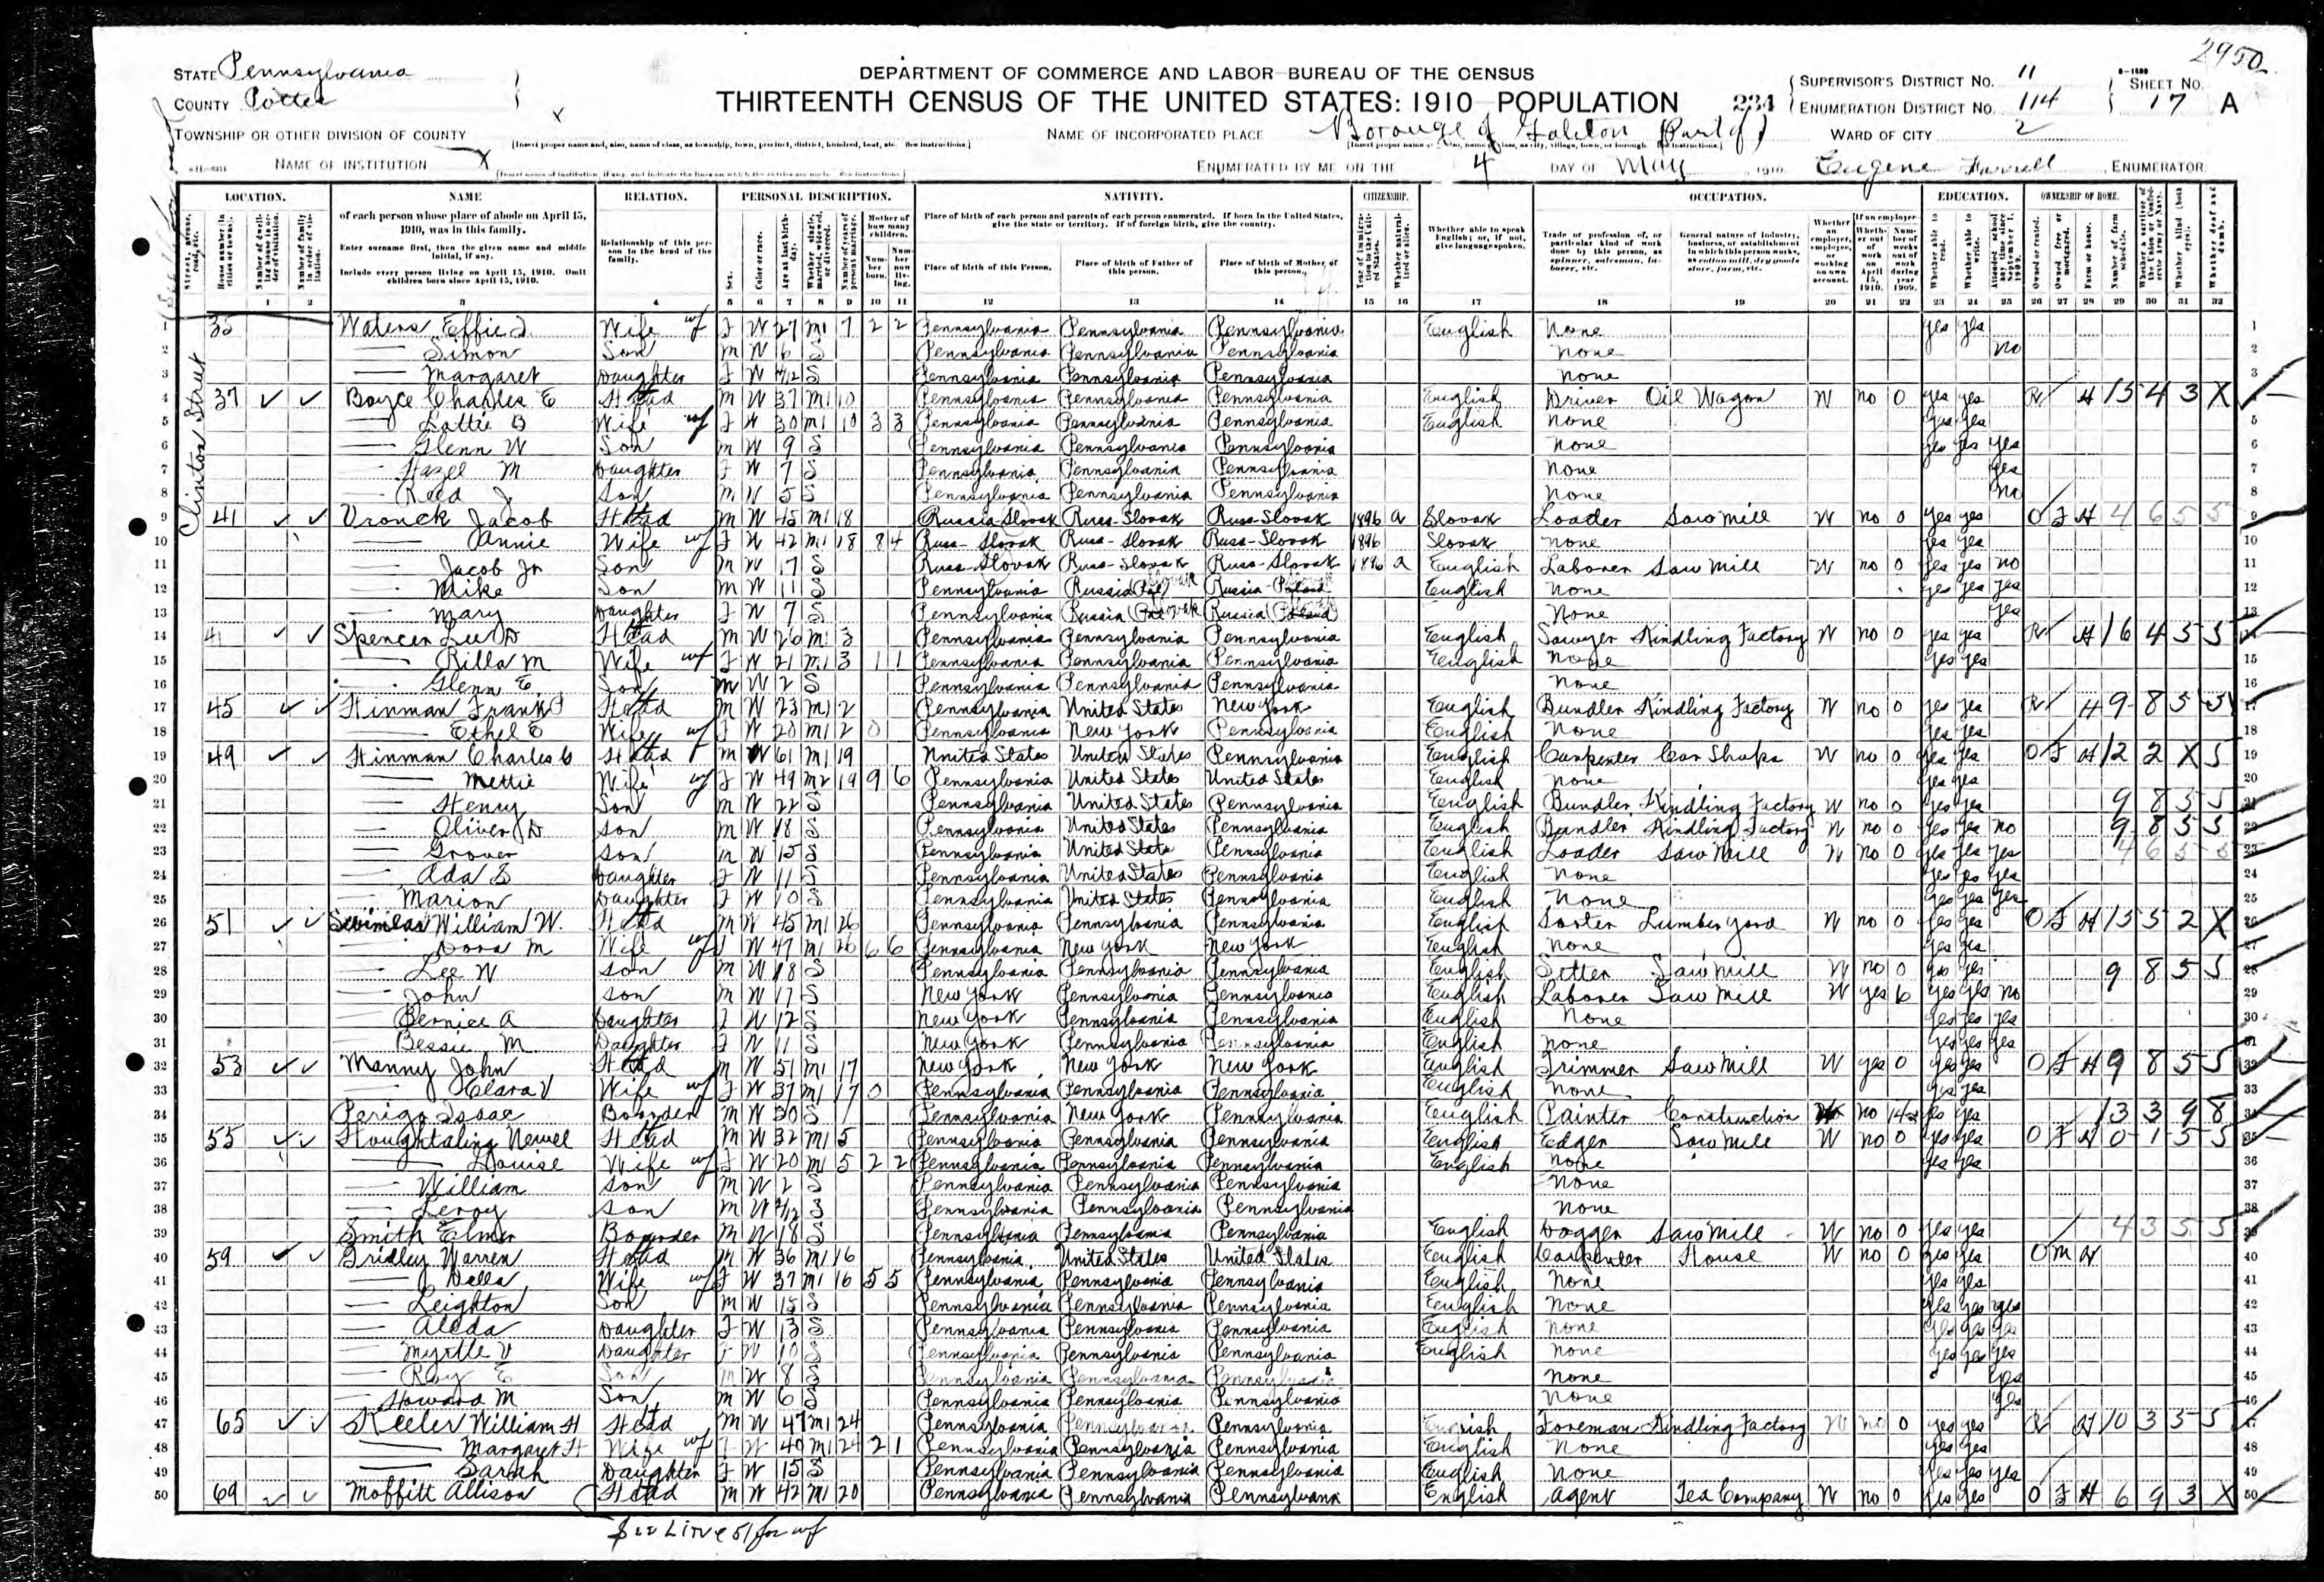 2950
STATE Pennsylvania
COUNTY Potter
DEPARTMENT OF COMMERCE AND LABOR-BUREAU OF THE CENSUS
THIRTEENTH CENSUS OF THE UNITED STATES: 1910 POPULATION
234
SUPERVISOR'S DISTRICT NO. 11
ENUMERATION DISTRICT NO. 114
SHEET NO. 17 A
TOWNSHIP OR OTHER DIVISION OF COUNTY X
NAME OF INCORPORATED PLACE Borough of Galeton (Part of)
WARD OF CITY 2
NAME OF INSTITUTION X
ENUMERATED BY ME ON THE 4 DAY OF May, 1910. Eugene Farrell, ENUMERATOR.
LOCATION. NAME RELATION. PERSONAL DESCRIPTION. NATIVITY. CITIZENSHIP. OCCUPATION. EDUCATION. OWNERSHIP OF HOME.
of each person whose place of abode on April 15, 1910, was in this family.
Enter surname first, then the given name and middle initial, if any.
Include every person living on April 15, 1910. Omit children born since April 15, 1910.
Relationship of this person to the head of the family.
Place of birth of each person and parents of each person enumerated. If born in the United States, give the state or territory. If of foreign birth, give the country.
Place of birth of this Person. Place of birth of Father of this person. Place of birth of Mother of this person.
Whether able to speak English; or, if not, give language spoken.
Trade or profession of, or particular kind of work done by this person, as spinner, salesman, laborer, etc.
General nature of industry, business, or establishment in which this person works, as cotton mill, dry goods store, farm, etc.
1 2 3 4 5 6 7 8 9 10 11 12 13 14 15 16 17 18 19 20 21 22 23 24 25 26 27 28 29 30 31 32
Clinton Street
1 35 Waters Effie Wife F W 27 M1 7 2 2 Pennsylvania Pennsylvania Pennsylvania English None yes yes
2 — Simon Son M W 6 S Pennsylvania Pennsylvania Pennsylvania None no
3 — Margaret Daughter F W S Pennsylvania Pennsylvania Pennsylvania None
4 37 Boyce Charles E Head M W 37 M1 10 Pennsylvania Pennsylvania Pennsylvania English Driver Oil Wagon W no 0 yes yes R H 15 4 3 X
5 — Lottie B Wife F W 30 M1 10 3 3 Pennsylvania Pennsylvania Pennsylvania English None yes yes
6 — Glenn W Son M W 9 S Pennsylvania Pennsylvania Pennsylvania None yes yes yes
7 — Hazel M Daughter F W 7 S Pennsylvania Pennsylvania Pennsylvania None yes
8 — Reed J Son M W 5 S Pennsylvania Pennsylvania Pennsylvania None no
9 41 Vronck Jacob Head M W 45 M1 18 Russia-Slovak Russ-Slovak Russ-Slovak 1896 a Slovak Loader Saw Mill W no 0 yes yes O F H 4 6 5 5
10 — Annie Wife F W 42 M1 18 8 4 Russ-Slovak Russ-Slovak Russ-Slovak 1896 Slovak None yes yes
11 — Jacob Jr Son M W 17 S Russ-Slovak Russ-Slovak Russ-Slovak 1896 a English Laborer Saw Mill W no 0 yes yes no
12 — Mike Son M W 11 S Pennsylvania Russia Russia English None yes yes yes
13 — Mary Daughter F W 7 S Pennsylvania Russia Russia None yes
14 41 Spencer Lee D Head M W 26 M1 3 Pennsylvania Pennsylvania Pennsylvania English Sawyer Kindling Factory W no 0 yes yes R H 16 4 5 5
15 — Rilla M Wife F W 21 M1 3 1 1 Pennsylvania Pennsylvania Pennsylvania English None yes yes
16 — Glenn E. Son M W 2 S Pennsylvania Pennsylvania Pennsylvania None
17 45 Hinman Frank Head M W 23 M1 2 Pennsylvania United States New York English Bundler Kindling Factory W no 0 yes yes R H 9 8 5 5
18 — Ethel E Wife F W 20 M1 2 0 Pennsylvania New York Pennsylvania English None yes yes
19 49 Hinman Charles Head M W 61 M1 19 United States United States Pennsylvania English Carpenter Car Shops W no 0 yes yes O F H 12 2 X 5
20 — Mettie Wife F W 49 M2 19 9 6 Pennsylvania United States United States English None yes yes
21 — Henry Son M W 22 S Pennsylvania United States Pennsylvania English Bundler Kindling Factory W no 0 yes yes 9 8 5 5
22 — Oliver D Son M W 18 S Pennsylvania United States Pennsylvania English Bundler Kindling Factory W no 0 yes yes no 9 8 5 5
23 — Grover Son M W 15 S Pennsylvania United States Pennsylvania English Loader Saw Mill W no 0 yes yes yes 4 6 5 5
24 — Ada Daughter F W 11 S Pennsylvania United States Pennsylvania English None yes yes yes
25 — Marion Daughter F W 10 S Pennsylvania United States Pennsylvania English None yes yes yes
26 51 William W. Head M W 45 M1 26 Pennsylvania Pennsylvania Pennsylvania English Sorter Lumber yard W no 0 yes yes O F H 15 5 2 X
27 — Dora M Wife F W 47 M1 26 6 6 Pennsylvania New York New York English None yes yes
28 — Lee W Son M W 18 S Pennsylvania Pennsylvania Pennsylvania English Setter Saw Mill W no 0 yes yes 9 8 5 5
29 — John Son M W 17 S New York Pennsylvania Pennsylvania English Laborer Saw Mill W yes 6 yes yes no
30 — Bernice A Daughter F W 12 S New York Pennsylvania Pennsylvania English None yes yes yes
31 — Bessie M Daughter F W 11 S New York Pennsylvania Pennsylvania English None yes yes yes
32 53 Manny John Head M W 51 M1 17 New York New York New York English Trimmer Saw Mill W yes 0 yes yes O F H 9 8 5 5
33 — Clara V Wife F W 37 M1 17 0 Pennsylvania Pennsylvania Pennsylvania English None yes yes
34 Perigo Isaac Boarder M W 30 S Pennsylvania New York Pennsylvania English Painter Construction no yes yes 13 3 9 8
35 55 Houghtaling Newel Head M W 32 M1 5 Pennsylvania Pennsylvania Pennsylvania English Edger Saw Mill W no 0 yes yes O F H 0 1 5 5
36 — Louise Wife F W 20 M1 5 2 2 Pennsylvania Pennsylvania Pennsylvania English None yes yes
37 — William Son M W 2 S Pennsylvania Pennsylvania Pennsylvania None
38 — Leroy Son M W S Pennsylvania Pennsylvania Pennsylvania None
39 Smith Elmer Boarder M W 18 S Pennsylvania Pennsylvania Pennsylvania English Dogger Saw Mill W no 0 yes yes 4 3 5 5
40 59 Gridley Warren Head M W 36 M1 16 Pennsylvania United States United States English Carpenter House W no 0 yes yes O M H
41 — Della Wife F W 37 M1 16 5 5 Pennsylvania Pennsylvania Pennsylvania English None yes yes
42 — Leighton Son M W 15 S Pennsylvania Pennsylvania Pennsylvania English None yes yes yes
43 — Aleda Daughter F W 13 S Pennsylvania Pennsylvania Pennsylvania English None yes yes yes
44 — Myrtle V Daughter F W 10 S Pennsylvania Pennsylvania Pennsylvania English None yes yes yes
45 — Roy E Son M W 8 S Pennsylvania Pennsylvania Pennsylvania None yes
46 — Howard M Son M W 6 S Pennsylvania Pennsylvania Pennsylvania None yes
47 65 Keeler William H Head M W 47 M1 24 Pennsylvania Pennsylvania Pennsylvania English Foreman Kindling Factory W no 0 yes yes R H 10 3 5 5
48 — Margaret H Wife F W 40 M1 24 2 1 Pennsylvania Pennsylvania Pennsylvania English None yes yes
49 — Sarah Daughter F W 15 S Pennsylvania Pennsylvania Pennsylvania English None yes yes yes
50 69 Moffitt Allison Head M W 42 M1 20 Pennsylvania Pennsylvania Pennsylvania English Agent Tea Company W no 0 yes yes O F H 6 9 3 X
See Line 51 for wf